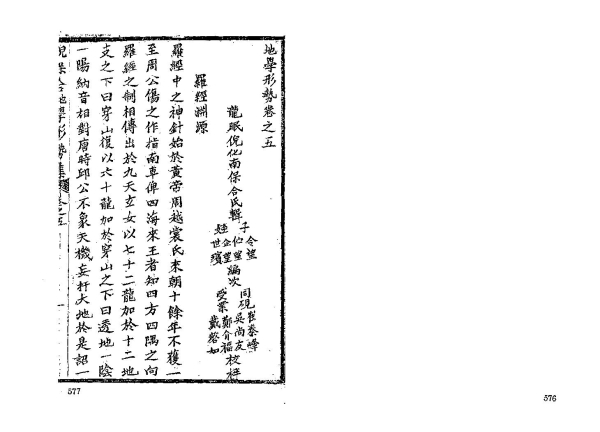 地學形勢卷之五
龍眠倪化南保合氏輯
子 令望
伯望
姪 企望 編次
世璸
同硯 崔泰峰
吳尚友
受業 鄭介福 校梓
戴啓如
羅經淵源
羅經中之神針始於黃帝周越裳氏來朝十餘年不獲一
至周公傷之作指南車俾四海來王者知四方四隅之向
羅經之制相傳出於九天玄女以七十二龍加於十二地
支之下曰穿山復以六十龍加於穿山之下曰透地一陰
一陽納音相對唐時邱公不象天機妄杆大地於是詔一
倪保合地學形勢集 卷之五
577
576